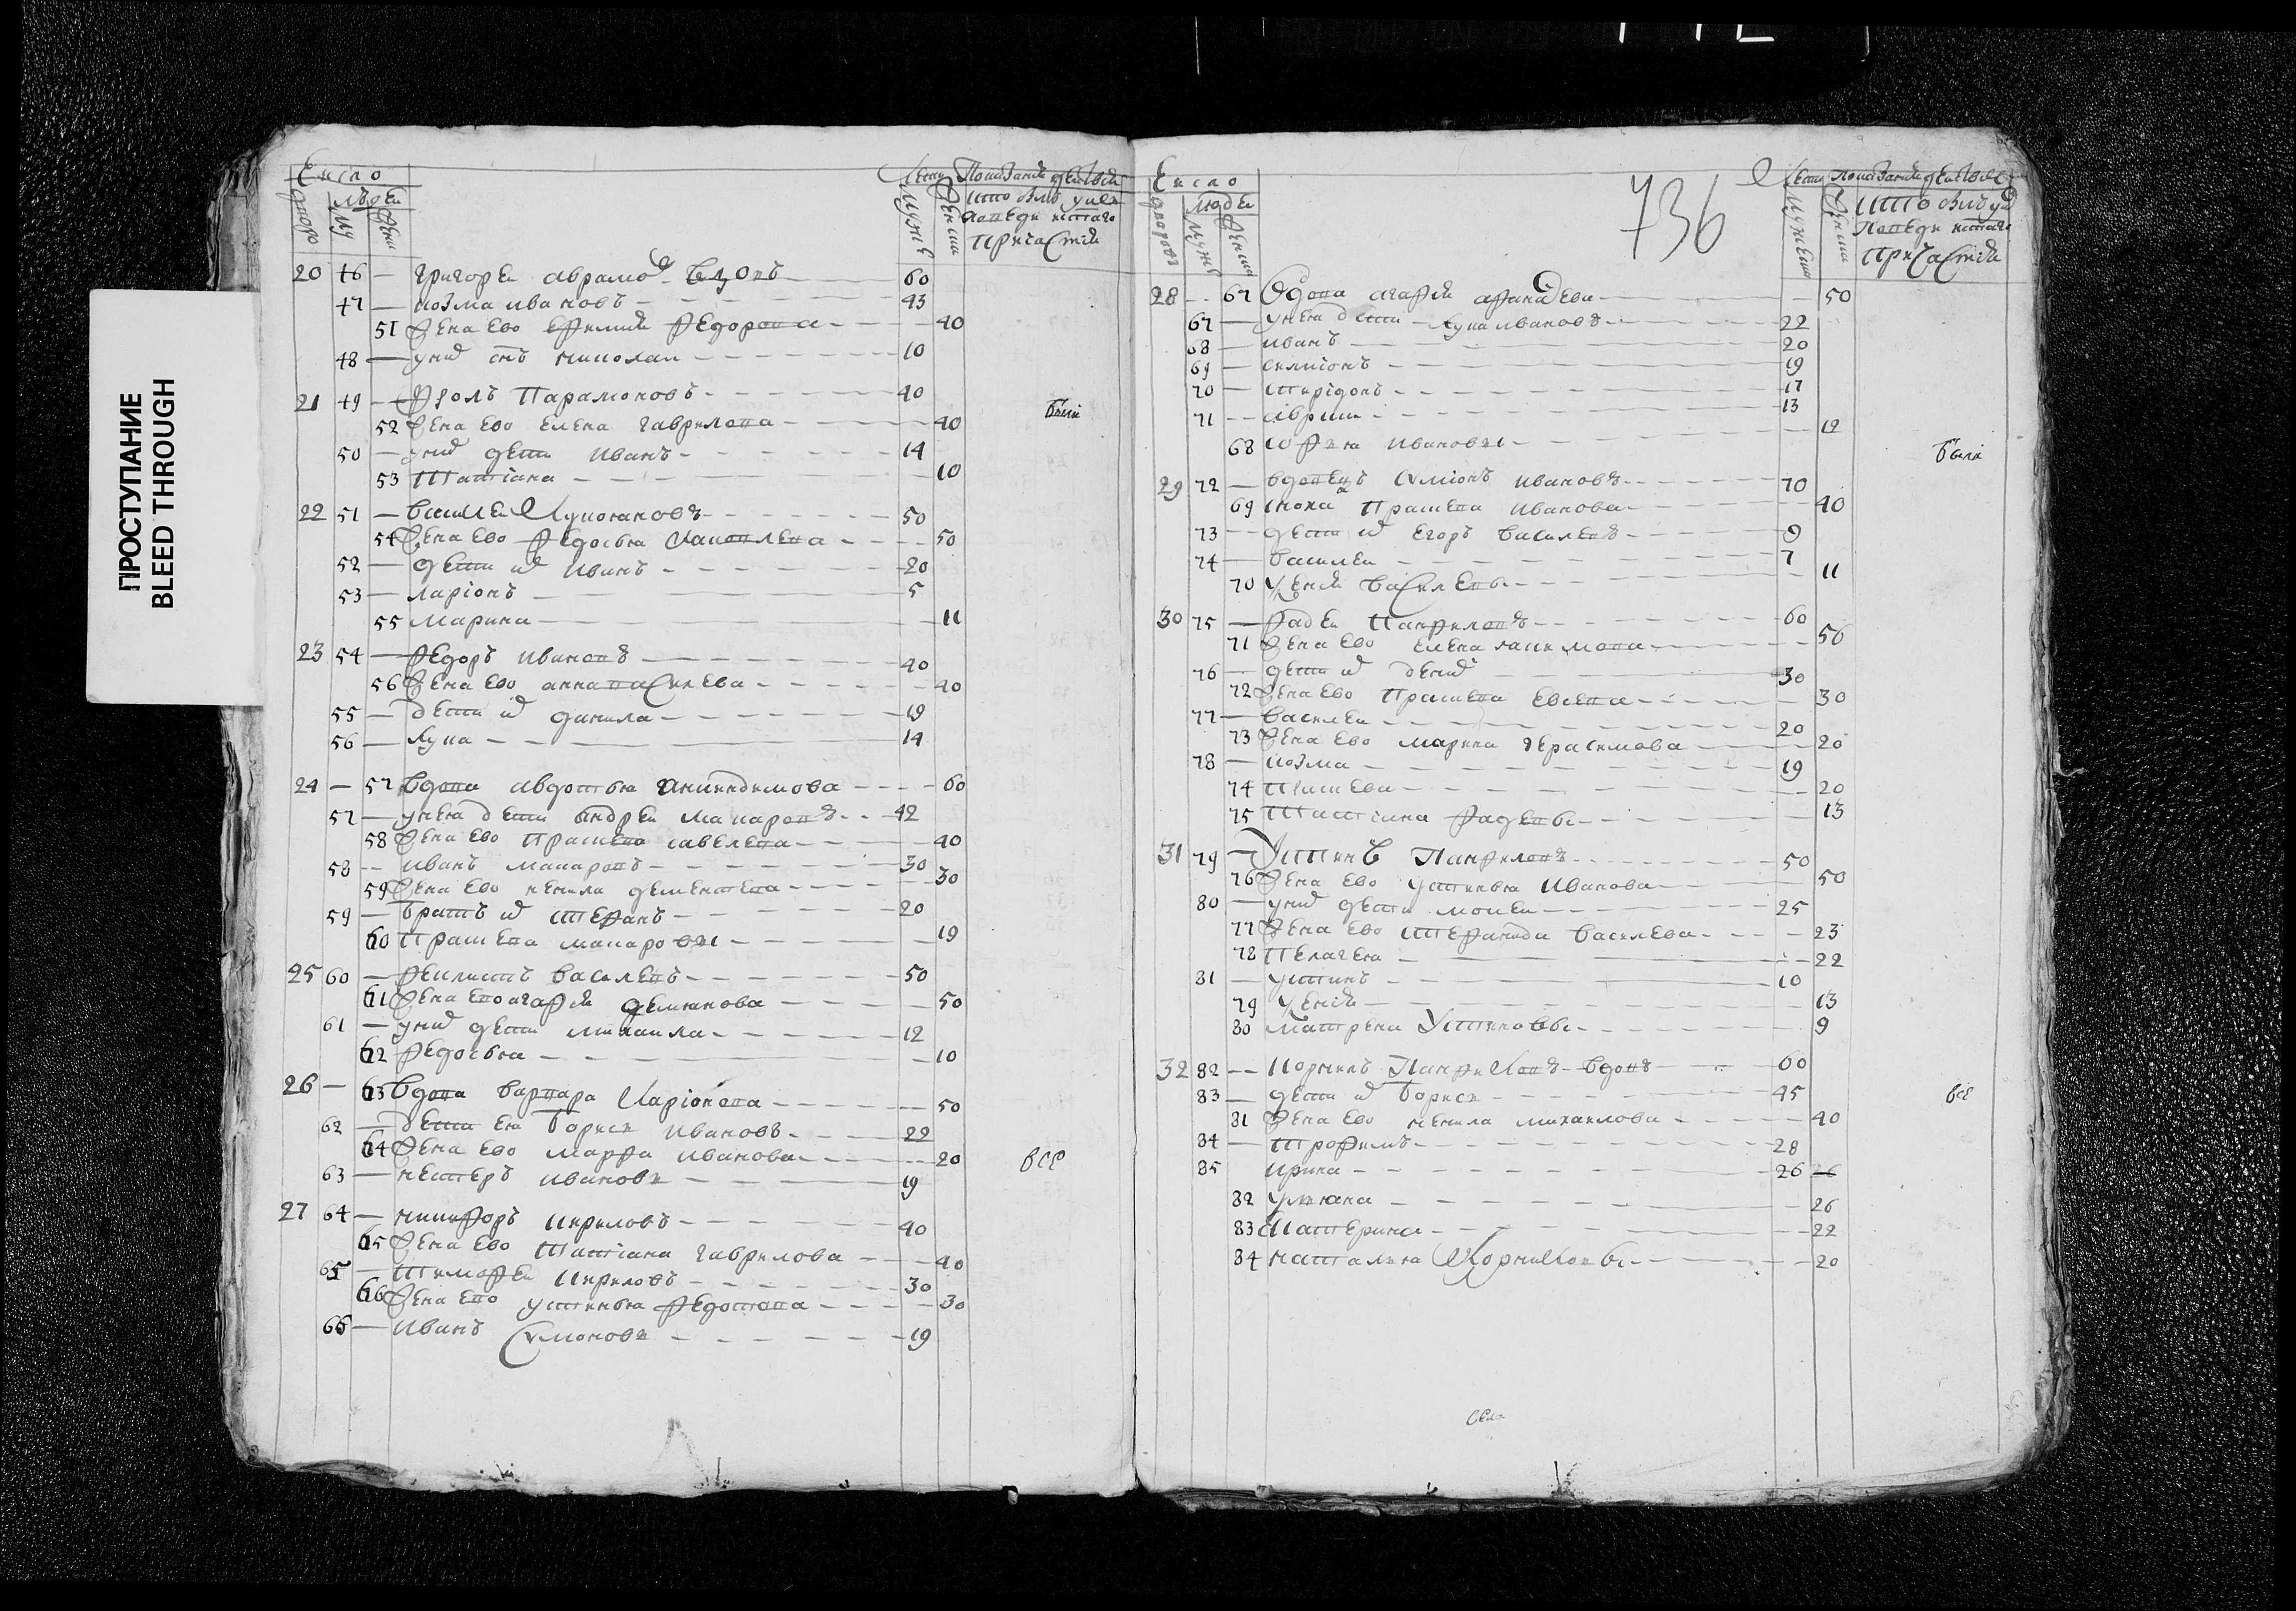 ПРОСТУПАНИЕ
BLEED THROUGH
Число
дворо
людеи
му
жен
Лета
мужe
женски
Показание деиствъ
кто былъ у исп
поведи и стаго
причастия
20 46 — григореи аврамов вдовъ 60
47 — козма ивановъ 43
51 жена ево ефимия федорова 40
48 — у них снъ николаи 10
21 49 — фролъ парамоновъ 40
были
52 жена ево елена гаврилова 40
50 — у них дети иванъ 14
53 татиана 10
22 51 — василеи лукоянов 50
54 жена ево федосья савовлева 50
52 — дети их иванъ 20
53 — ларионъ 5
55 марина 11
23 54 — федоръ иванов 40
56 жена ево анна василева 40
55 — дети их данила 19
56 — лука 14
24 — 57 вдова авдотья 60
57 — у нея дети андреи макаров 42
58 жена ево прасковя савелева 40
58 — иванъ макаровъ 30
59 жена ево ненила дементева 30
59 — братъ их стефанъ 20
60 макаровы 19
25 60 — филипъ василевъ 50
61 жена ево агафия демянова 50
61 — у них дети михаила 12
62 федосья 10
26 — 63 вдова варвара лариονова 50
62 — дети ея борисъ ивановъ 22
64 жена ево марфа иванова 20
все
63 — нестеръ ивановъ 19
27 64 — никифоръ кириловъ 40
65 жена ево татиана гаврилова 40
65 — тимофеи кириловъ 30
66 жена ево устинья федотова 30
66 — иванъ симоновъ 19
736
Число
дворовъ
людеи
мужe
женски
Лета
мужески
женски
показание деиствъ
кто былъ у
поведи и стаго
причастия
28 — 67 вдова агафия 50
67 — у нея дети лука ивановъ 22
68 — иванъ 20
69 — симионъ 19
70 — спиридонъ 17
71 — 13
68 софия ивановы 12
были
29 72 — вдовецъ симионъ ивановъ 70
69 сноха иванова 40
73 — дети их егоръ василевъ 9
74 — василеи 7
70 ксения василевы 11
30 75 — фадеи панфиловъ 60
71 жена ево елена 56
76 — дети их денис 30
72 жена ево евсева 30
77 — василеи 20
73 жена ево марина герасимова 20
78 — козма 19
74 20
75 татиана фадевы 13
31 79 — устинъ панфиловъ 50
76 жена ево устинья иванова 50
80 — у них дети мокеи 25
77 жена ево стефанида василева 23
78 пелагея 22
81 — устинъ 10
79 ксения 13
80 матрена устиновы 9
32 82 — корнилъ панфиловъ вдовъ 60
83 — дети их борисъ 45
все
81 жена ево ненила михаилова 40
84 — трофимъ 28
85 ирина 26 26
82 улияна 26
83 катерина 22
84 наталия корниловы 20
села